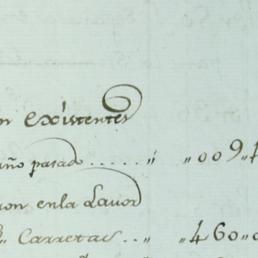 n existentes
año pasado ...... " "009
ron enla Lavor
Carretas .. " "460"0